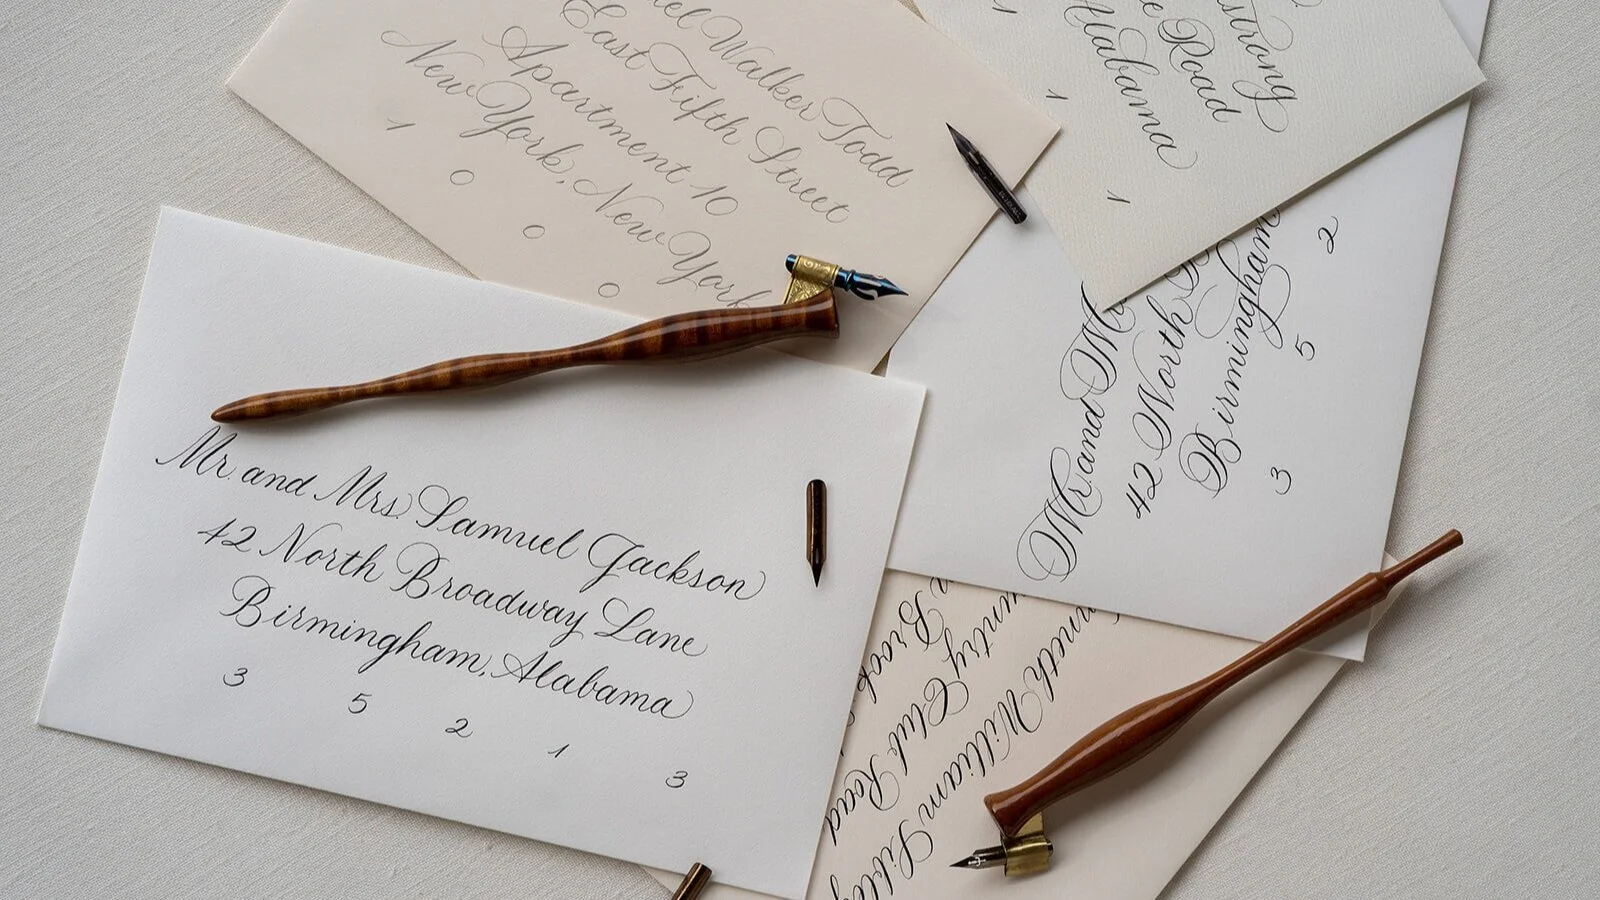 Walker Todd
East Fifth Street
Apartment 10
New York, New York
1 0 0 0
strong
Road
Alabama
1 1 1
Mr. and Mrs. Samuel Jackson
42 North Broadway Lane
Birmingham, Alabama
3 5 2 1 3
Mr. and
42 North
Birmingham
3 5 2
William
Club Road
Brook